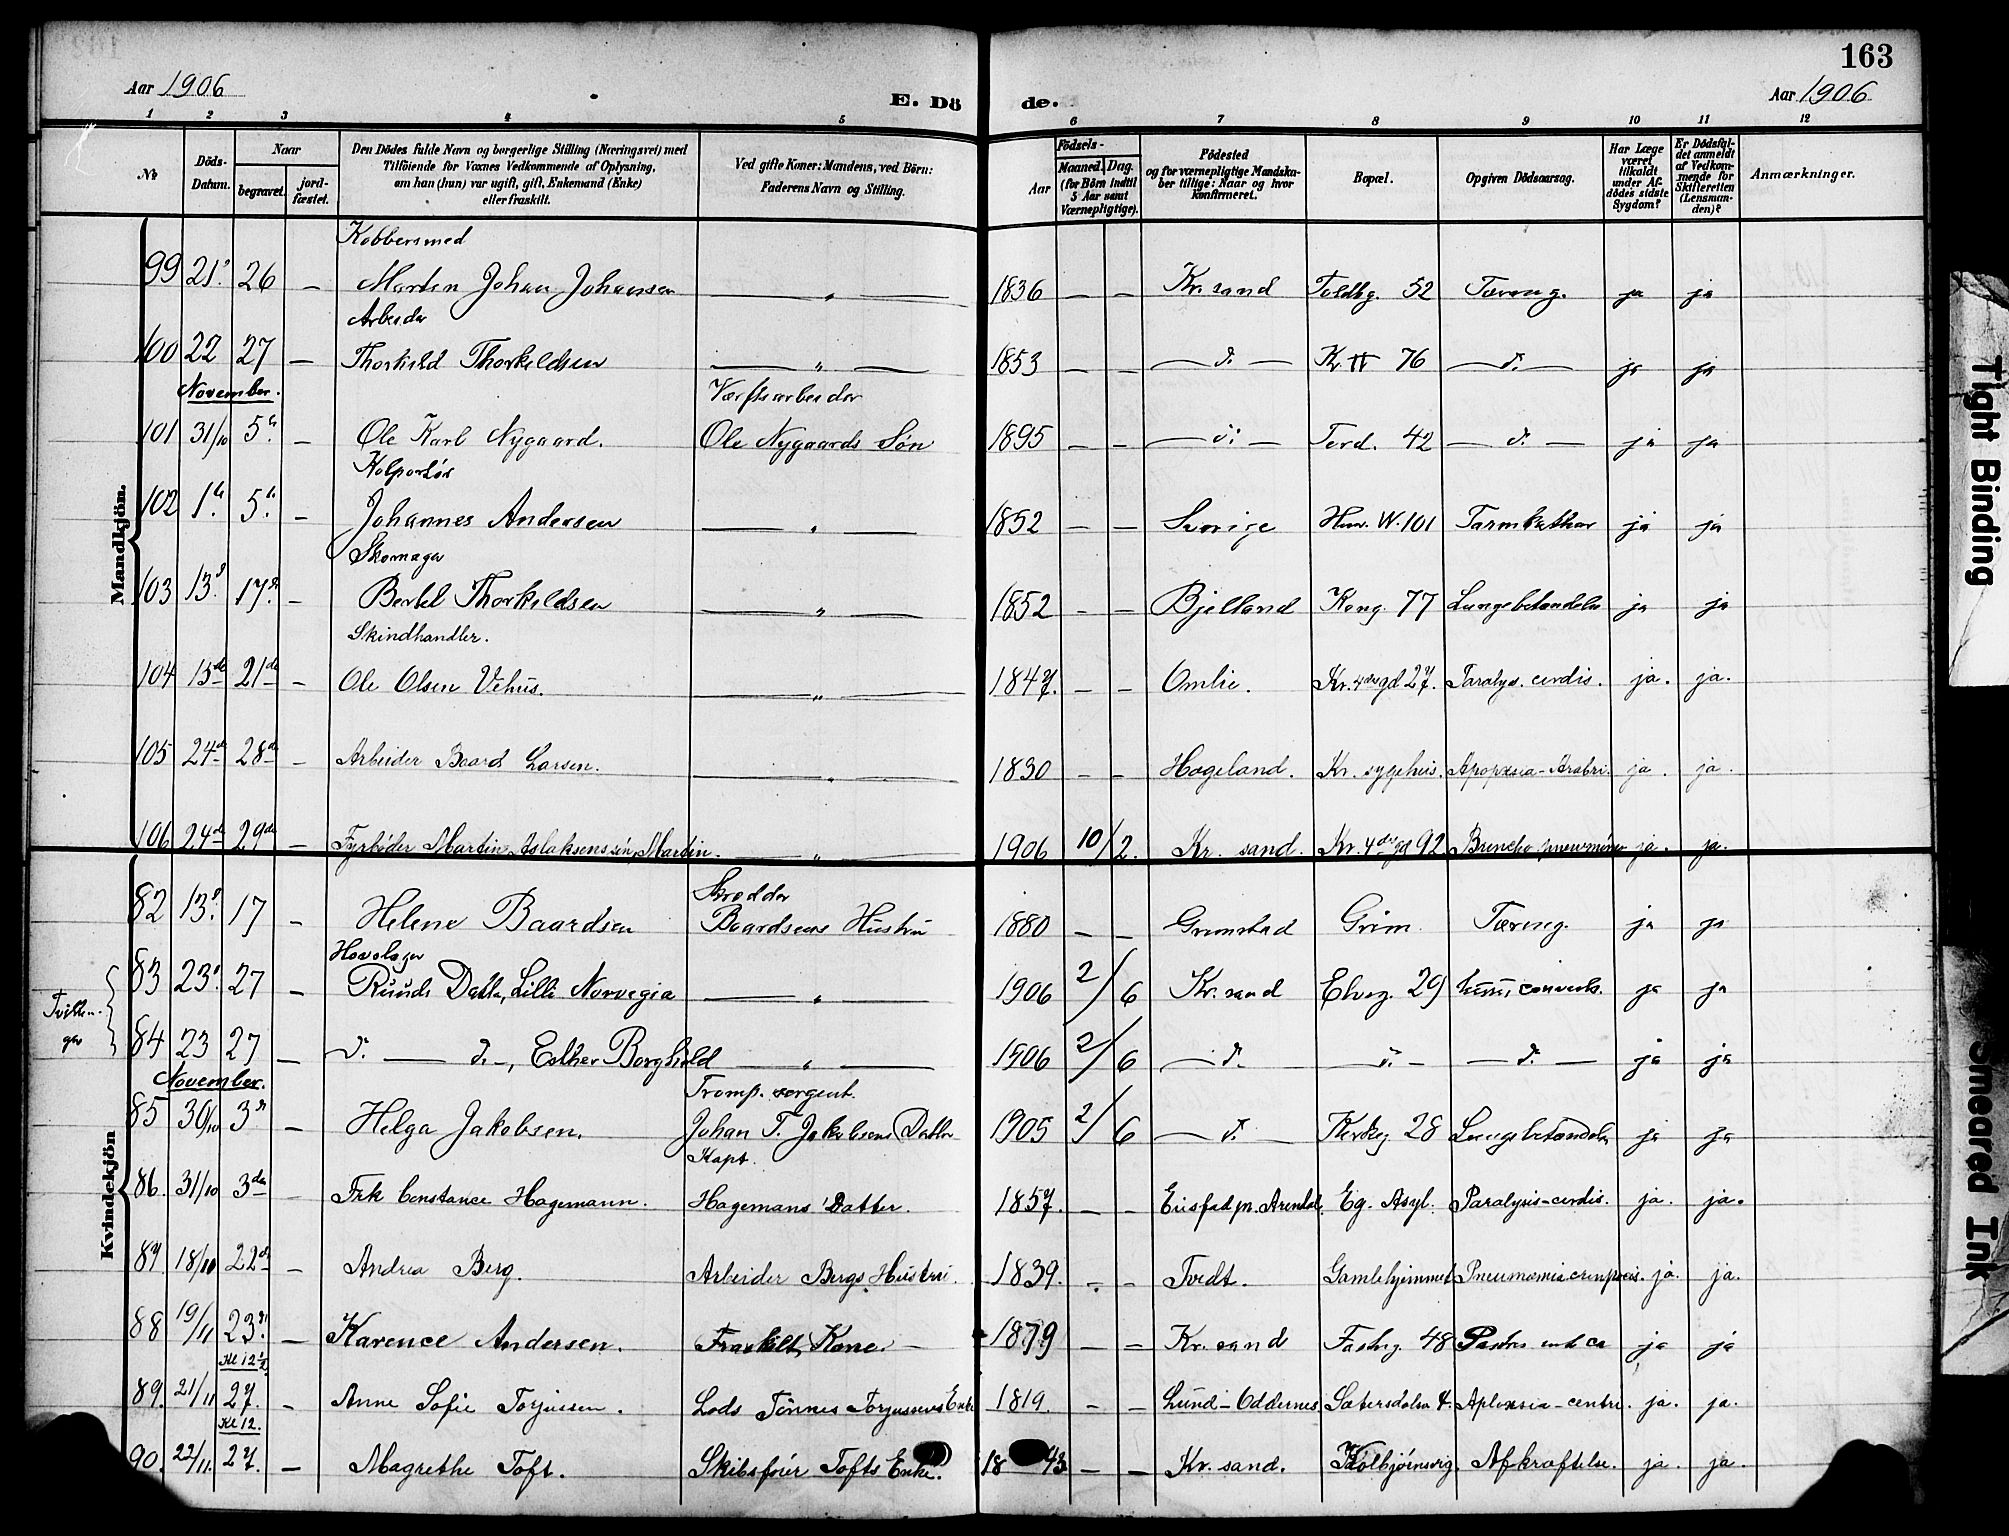 163
Aar 1906
E. Dö de.
Aar 1906
1 2 3 4 5 6 7 8 9 10 11 12
No
Döds-Datum.
Naar
begravet.
jordfæstet.
Den Dödes fulde Navn og borgerlige Stilling (Næringsvei) med
Tilföiende for Voxnes Vedkommende af Oplysning,
om han (hun) var ugift, gift, Enkemand (Enke)
eller fraskilt.
Ved gifte Koner: Mandens, ved Börn:
Faderens Navn og Stilling.
Födsels-
Aar
Maaned. Dag.
(for Börn indtil
5 Aar samt
Værnepligtige).
Födested
og for værnepligtige Mandskaber tillige: Naar og hvor
konfirmeret.
Bopæl.
Opgiven Dödsaarsag.
Har Læge
været
tilkaldt
under Afdödes sidste
Sygdom?
Er Dödsfaldet anmeldt
af Vedkommende for
Skifteretten
(Lensmanden)?
Anmærkninger.
Mandkjön.
Kobbersmed
99 21. 26 – Martin Johan Johansen — „ — 1836 – – Kr. sand Toldbg. 52 Tæring. ja ja
Arbeider
100 22 27 – Thorkild Thorkeldsen — „ — 1853 – – — d. — Kr 76 — d. — ja ja
November. Værftsarbeider
101 31/10 5. – Ole Karl Nygaard. Ole Nygaards Søn 1895 – – — d. — Tord. 42 — d. — ja ja
Kolportør
102 1. 5. – Johannes Andersen — „ — 1852 – – Sverige Hen. W. 101 Tarmkathar ja ja
Skomager
103 13. 17. – Bertel Thorkildsen — „ — 1852 – – Bjelland Kong. 77 Lungebetændelse ja ja
Skindhandler.
104 15de 21de – Ole Olsen Vehus. — „ — 1847. – – Omlie. Kr. 4des gd 27. Paralys. cordis. ja. ja.
105 24de 28de – Arbeider Baard Larsen. — „ — 1830 – – Hægeland. Kr. sygehus. ja. ja.
106 24de 29de – Fyrbøder Martin Aslaksens søn, Martin. — „ — 1906 10/2. Kr. sand. Kr. 4des gd 92 Broncho pneumoni ja. ja.
Kvindekjön
Skrædder
82 13. 17 – Helene Baardsen Baardsens Hustru 1880 – – Grimstad Grim. Tæring. ja ja
Hovslager
83 23. 27 – Ruuds Datter, Lilli Norvegia — „ — 1906 2/6 Kr. sand Elveg. 29 ja ja
Tvillinger
84 23 27 – d. — d. –, Esther Borghild — „ — 1906 2/6 — d. — d. — — d. — ja ja
November. Tromp. sergent.
85 30/10 3. – Helga Jakobsen. Johan T. Jakobsens Datter 1905 2/6 — d. — Kirkeg 28 Lungebetændelse ja ja
Kapt.
86. 31/10 3de – Frk Constance Hagemann. Hagemans Datter. 1857. – – Arendal. Eg. Asyl. Paralysis-cordis. ja. ja.
87. 18/10 22de – Andrea Berg. Arbeider Bergs Hustru. 1839. – – Tvedt. Gamlehjemmet Pneumonia ja. ja.
88 19/11 23. – Karence Andersen. Fraskilt Kone. – 1879 – – Kr. sand Fæstng. 48 ja ja
Kl 12 1/2
89. 21/11 27. – Anne Sofie Torjusen. Lods Tönnes Torjussens Enke 1819. – – Lund-Oddernes Sætersdalsv 4. ja. ja.
Kl 12.
90. 22/11. 27. – Magrethe Toft. Skibsfører Tofts Enke. 18 43 – – Kr. sand. Kolbjørnsvig. Afkræftelse. ja. ja.
Tight Binding
Smeared Ink